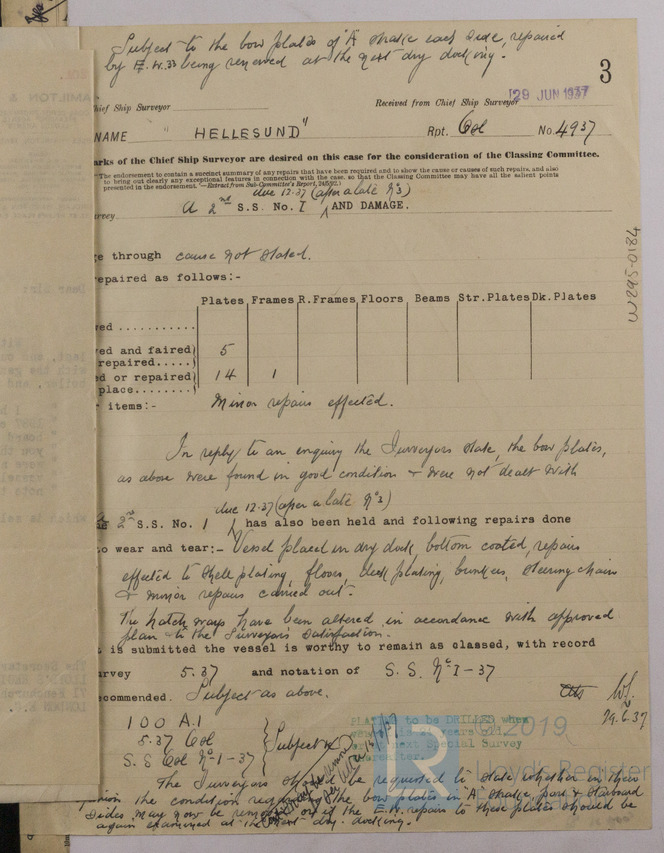 Subject to the bow plates of "A" strake each side, repaired
by E.W.33 being renewed at the next dry docking.
3
hief Ship Surveyor
Received from Chief Ship Surveyor
29 JUN 1937
NAME "HELLESUND" Rpt. Col No. 4937
arks of the Chief Ship Surveyor are desired on this case for the consideration of the Classing Committee.
"The endorsement to contain a succinct summary of any repairs that have been required and to show the cause or causes of such repairs, and also
to bring out clearly any exceptional features in connection with the case, so that the Classing Committee may have all the salient points
presented in the endorsement."—Extract from Sub-Committee's Report, 24/5/92.)
due 12.37 (after a late No 3)
urvey a 2nd S.S. No. I AND DAMAGE.
W295-0184
e through cause not stated.
epaired as follows:-
Plates Frames R.Frames Floors Beams Str.Plates Dk.Plates
ed ..........
ed and faired) 5
repaired.....)
ed or repaired) 14 1
place........)
r items:- Minor repairs effected.
In reply to an enquiry the Surveyors state, the bow plates,
as above were found in good condition & were not dealt with
due 12.37 (after a late No 3)
2nd S.S. No. 1 has also been held and following repairs done
o wear and tear:- Vessel placed in dry dock, bottom coated, repairs
effected to shell plating, floors, deck plating, bunkers, steering chain
& minor repairs carried out.
The hatchways have been altered in accordance with approved
plan & to the Surveyors satisfaction.
t is submitted the vessel is worthy to remain as classed, with record
urvey 5.37 and notation of S.S. No I-37
ecommended. Subject as above.
29.6.37
100 A.1
5.37 Col
S.S Col No 1-37
Subject
PLATING to be DRILLED when
years old
next Special Survey
thereafter.
© 2019
Lloyd's Register
Foundation
The Surveyors should be requested to state whether in their
opinion the condition the bow plates in "A" strake, port & starboard
sides may now be the E.W. repair to these plates should be
again examined at the next dry-docking.